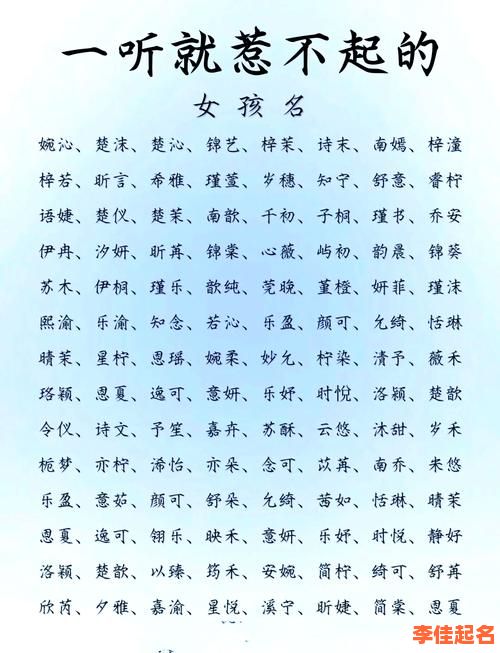 一听就惹不起的
女孩名
婉沁、楚沫、楚沁、锦艺、梓茉、诗末、南嫣、梓潼
梓若、昕言、希雅、瑾萱、岁穗、知宁、舒意、睿柠
语婕、楚仪、楚茉、南歆、千初、子桐、瑾书、乔安
伊冉、汐妍、昕苒、锦棠、心薇、屿初、韵晨、锦葵
苏木、伊桐、瑾乐、歆纯、莞晚、堇橙、妍菲、瑾沫
熙渝、乐渝、知念、若沁、乐盈、颜可、允绮、恬琳
晴茉、星柠、思瑶、婉柔、妙允、柠染、清予、薇禾
珞颖、思夏、逸可、意妍、乐妤、时悦、洛颖、楚歆
令仪、诗文、予笙、嘉卉、苏酥、云悠、沐甜、岁禾
栀梦、亦柠、浠怡、亦朵、念可、苡苒、南乔、朱悠
乐盈、意茹、颜可、舒朵、允绮、茜如、恬琳、晴茉
思夏、逸可、翎乐、映禾、意妍、乐妤、时悦、静好
洛颖、楚歆、以臻、筠禾、安婉、简柠、绮可、舒苒
欣芮、夕雅、嘉渝、星悦、溪宁、昕婕、简棠、思夏
李佳起名